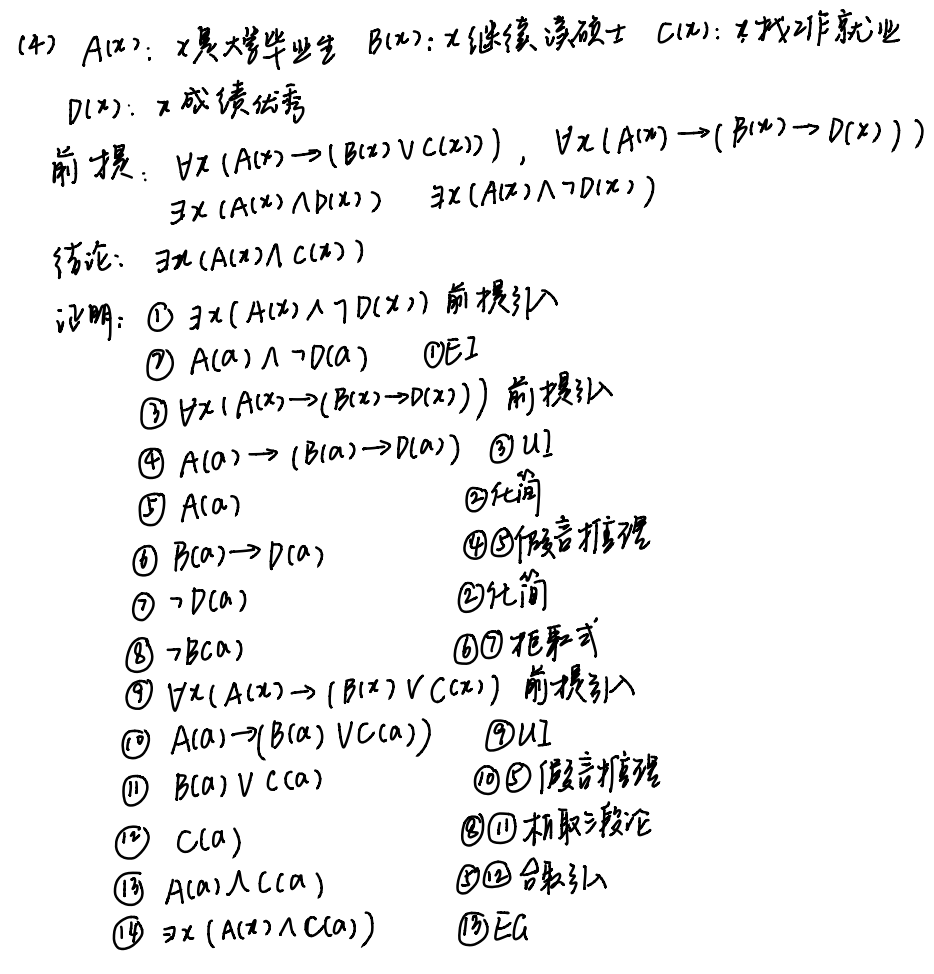 (4) A(x): x是大学毕业生 B(x): x继续读硕士 C(x): x找工作就业
D(x): x成绩优秀
前提: ∀x(A(x)→(B(x)∨C(x))), ∀x(A(x)→(B(x)→D(x)))
∃x(A(x)∧D(x)) ∃x(A(x)∧¬D(x))
结论: ∃x(A(x)∧C(x))
证明: ① ∃x(A(x)∧¬D(x)) 前提引入
② A(a)∧¬D(a) ①EI
③ ∀x(A(x)→(B(x)→D(x))) 前提引入
④ A(a)→(B(a)→D(a)) ③UI
⑤ A(a) ②化简
⑥ B(a)→D(a) ④⑤假言推理
⑦ ¬D(a) ②化简
⑧ ¬B(a) ⑥⑦拒取式
⑨ ∀x(A(x)→(B(x)∨C(x)) 前提引入
⑩ A(a)→(B(a)∨C(a)) ⑨UI
⑪ B(a)∨C(a) ⑩⑤假言推理
⑫ C(a) ⑧⑪析取三段论
⑬ A(a)∧C(a) ⑤⑫合取引入
⑭ ∃x(A(x)∧C(a)) ⑬EG